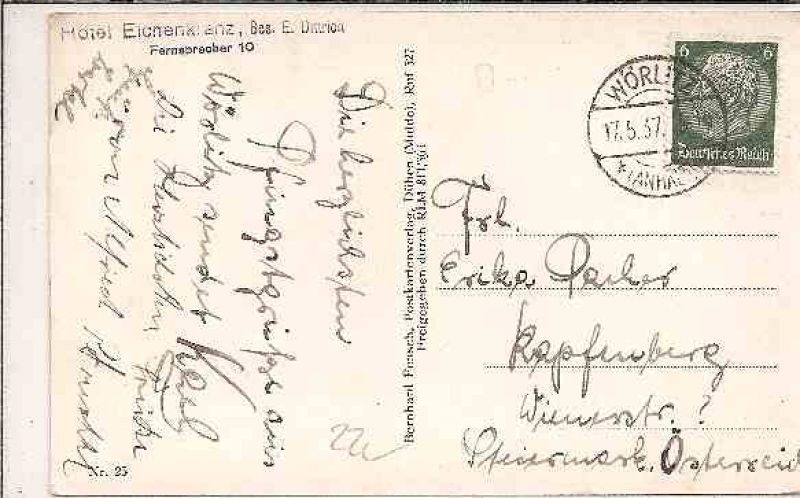 Hotel Eichenkranz, Bes. E. Dittrich
Fernsprecher 10
Die herzlichsten
Pfingstgrüße aus
Wörlitz sendet Karl
Die herzlichsten Grüße
Alfred
Nr. 25
Bernhard Fensch, Postkartenverlag, Düben (Mulde), Ruf 327
Freigegeben durch RLM
WÖRL
17.5.37.
(ANHA
6 6
Deutsches Reich
Frl.
Erika Pacher
Kapfenberg
Wienerstr. ?
Steiermark, Österreich